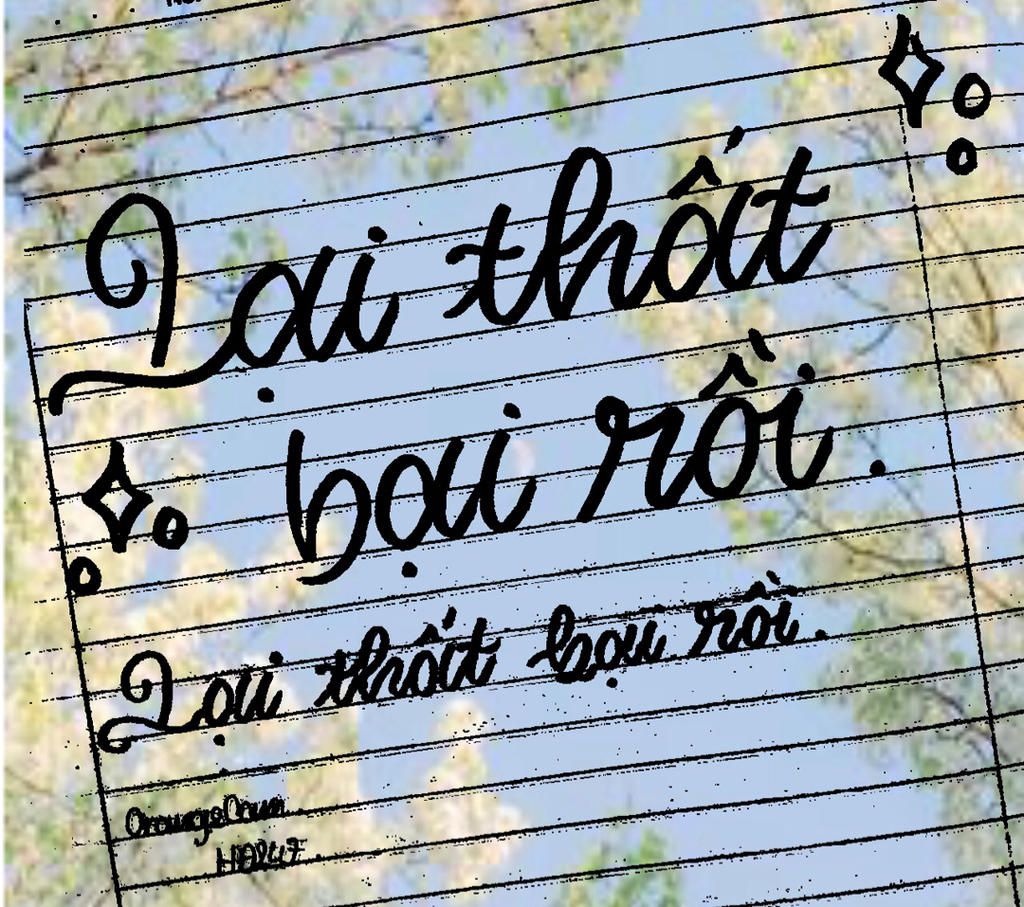 Lại thất
bại rồi.
Lại thất bại rồi.